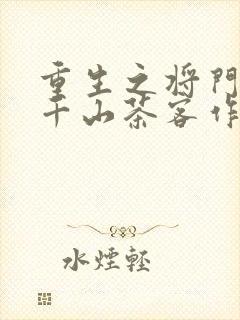 重生之将门
千山茶客作
水煙輕